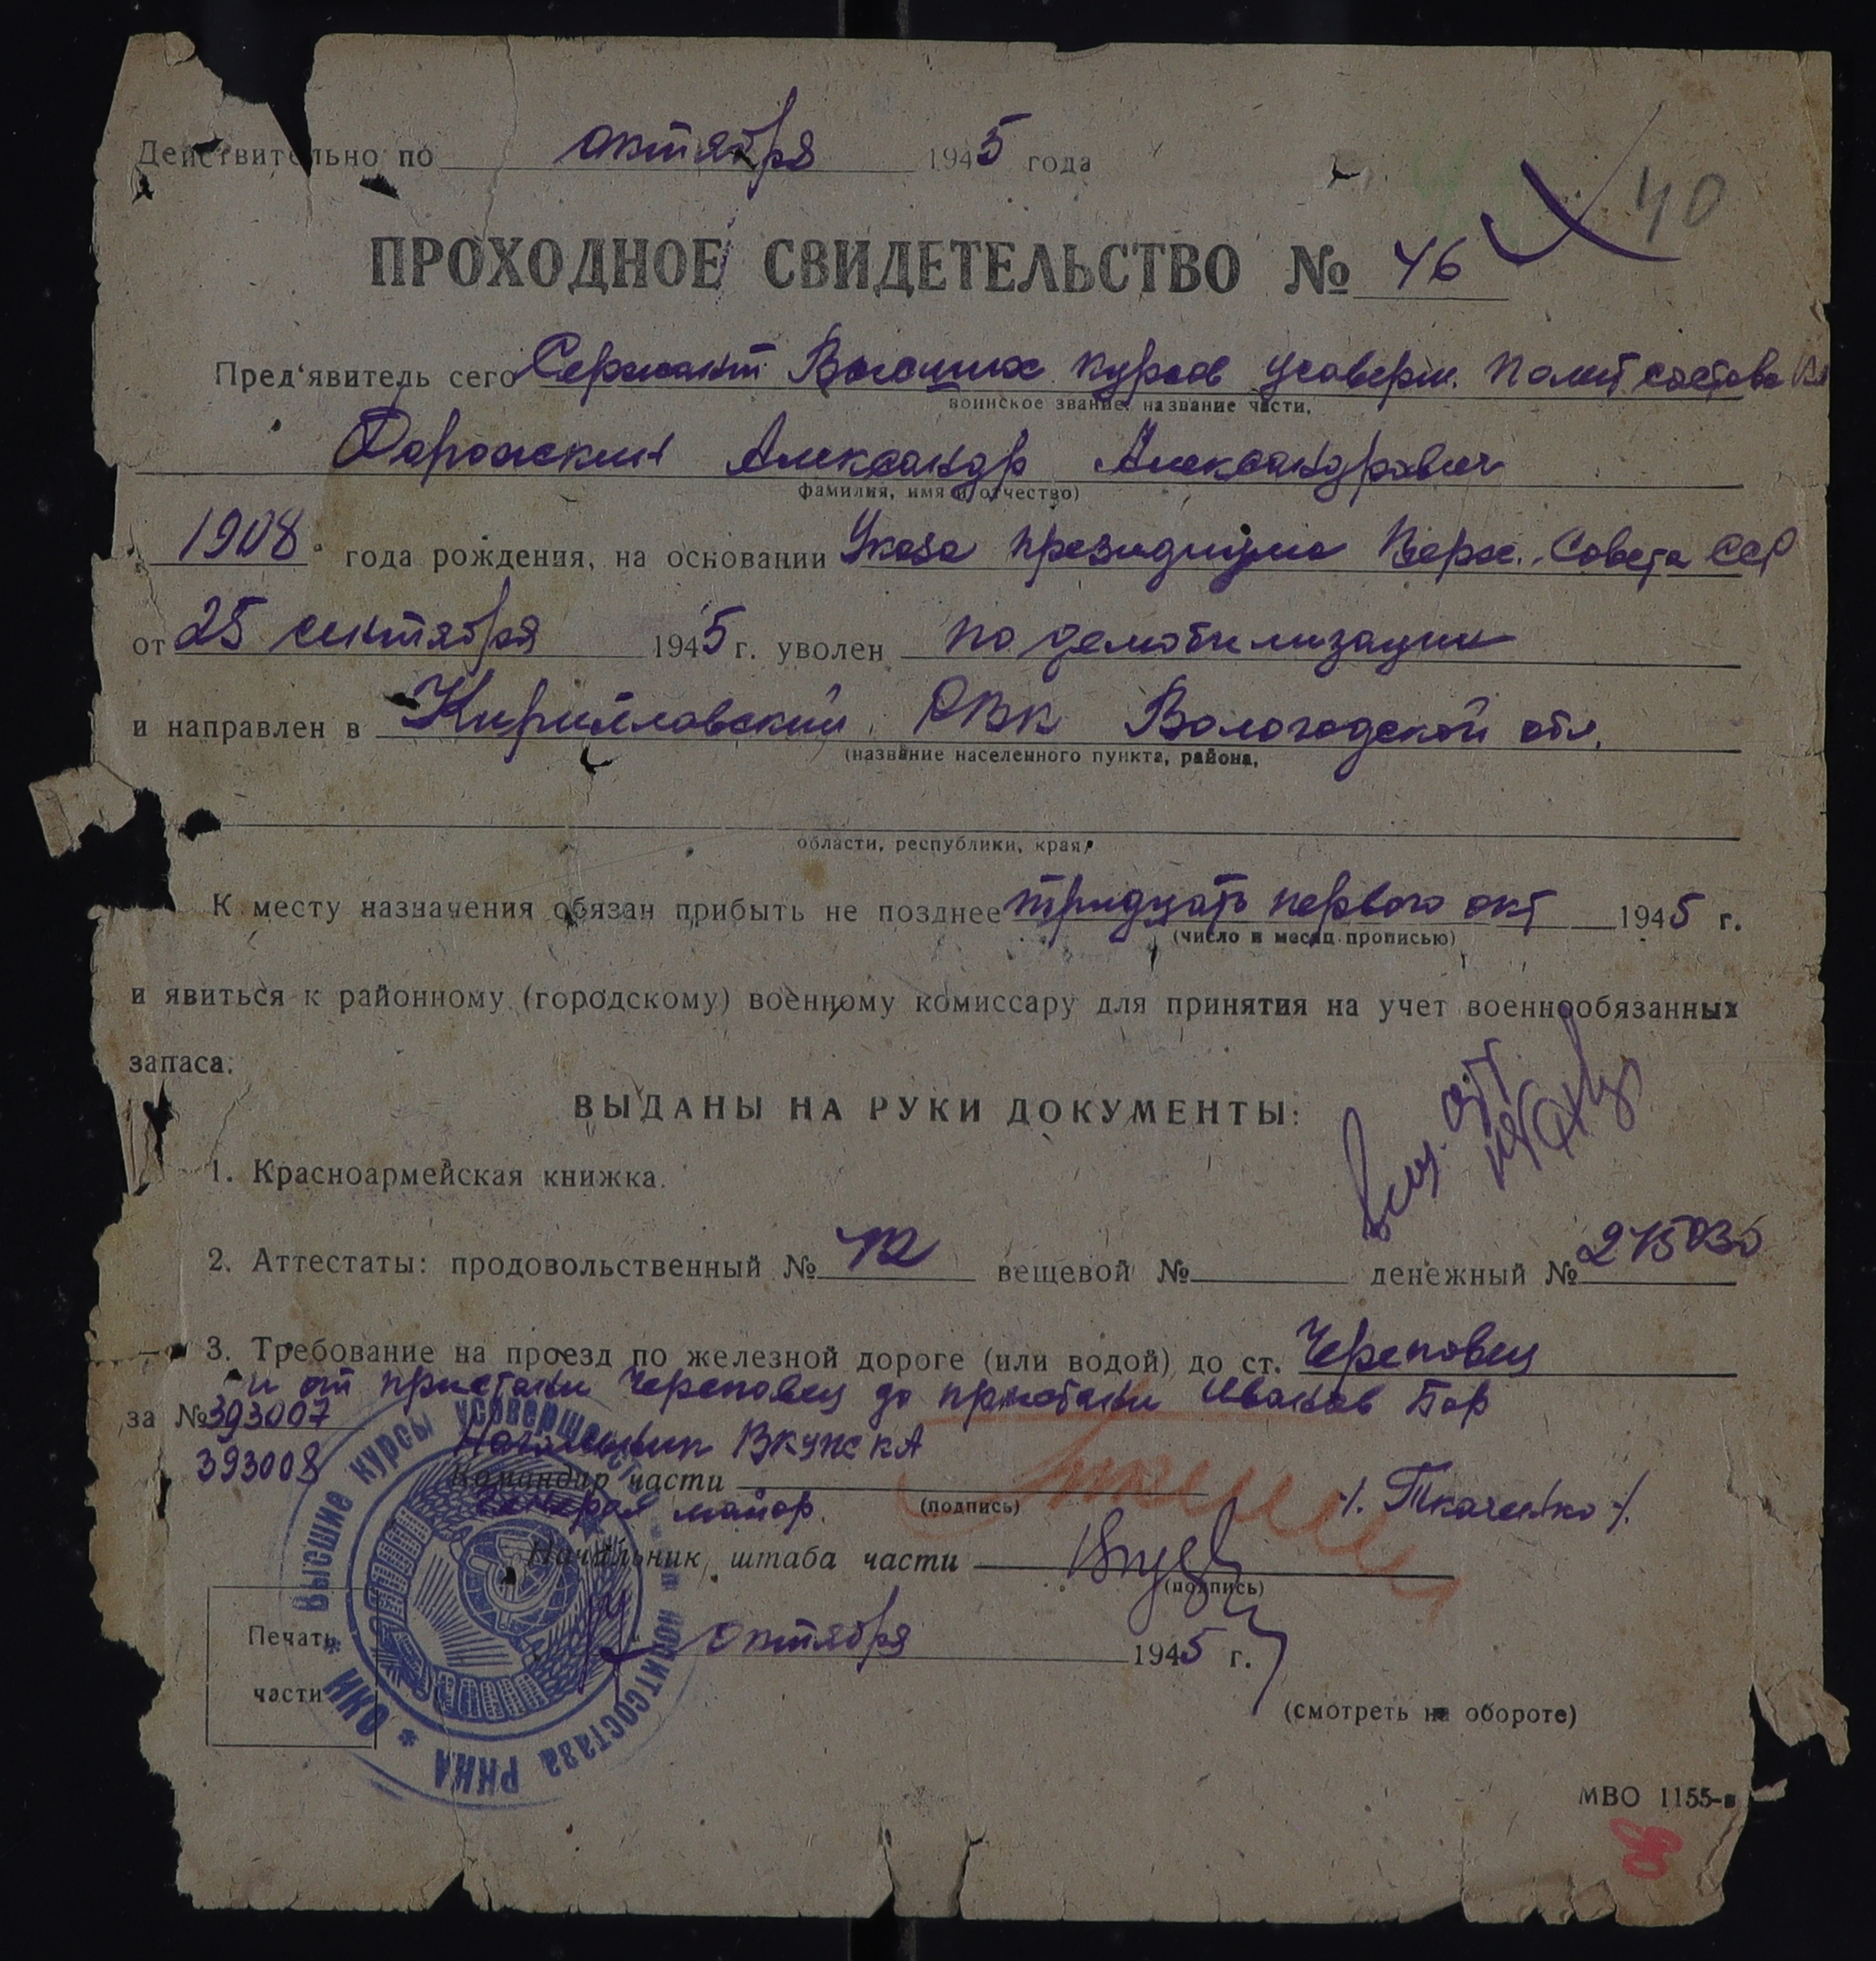 Действительно по октября 1945 года
40
ПРОХОДНОЕ СВИДЕТЕЛЬСТВО № 46
Пред'явитель сего Сержант Высших курсов усоверш. Политсостава
воинское звание, название части,
Дорожкин Александр Александрович
фамилия, имя и отчество)
1908 года рождения, на основании Указа президиума Верх. Совета ССР
от 25 сентября 1945 г. уволен по демобилизации
и направлен в Кирилловский РВК Вологодской обл.
(название населенного пункта, района,
области, республики, края,
К месту назначения обязан прибыть не позднее тридцать первого окт 1945 г.
(число и месяц прописью)
и явиться к районному (городскому) военному комиссару для принятия на учет военнообязанных
запаса.
ВЫДАНЫ НА РУКИ ДОКУМЕНТЫ:
1. Красноармейская книжка.
2. Аттестаты: продовольственный № вещевой № денежный №
3. Требование на проезд по железной дороге (или водой) до ст. Череповец
и от пристани Череповец до пристани Иванов Бор
за № 393007
393008
Начальник ВКУПСКА
Командир части
(подпись)
генерал майор.
/. Ткаченко /.
Начальник штаба части
(подпись)
октября 1945 г.
Печать
части
(смотреть на обороте)
ВЫСШИЕ КУРСЫ УСОВЕРШЕНСТ ПОЛИТСОСТАВА РККА * НКО *
МВО 1155-в